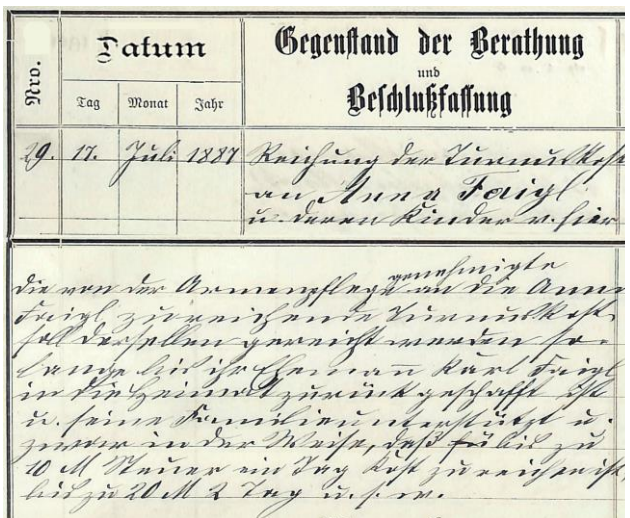 Nro.
Datum
Tag Monat Jahr
Gegenstand der Berathung
und
Beschlußfassung
29. 17. Juli 1887 Reichung der Turnuskost
an Anna Faigl
u. deren Kinder v. hier
genehmigte
Die von der Armenpflege an die Anna
Faigl zu reichende Turnuskost
soll derselben gereicht werden so-
lange bis ihr Ehemann Karl Faigl
in die Heimat zurückgeschafft ist
u. seine Familie unterstützt u.
zwar in der Weise, daß bis zu
10 M Steuer ein Tag Kost zu reichen ist,
bis zu 20 M 2 Tag u. s. w.